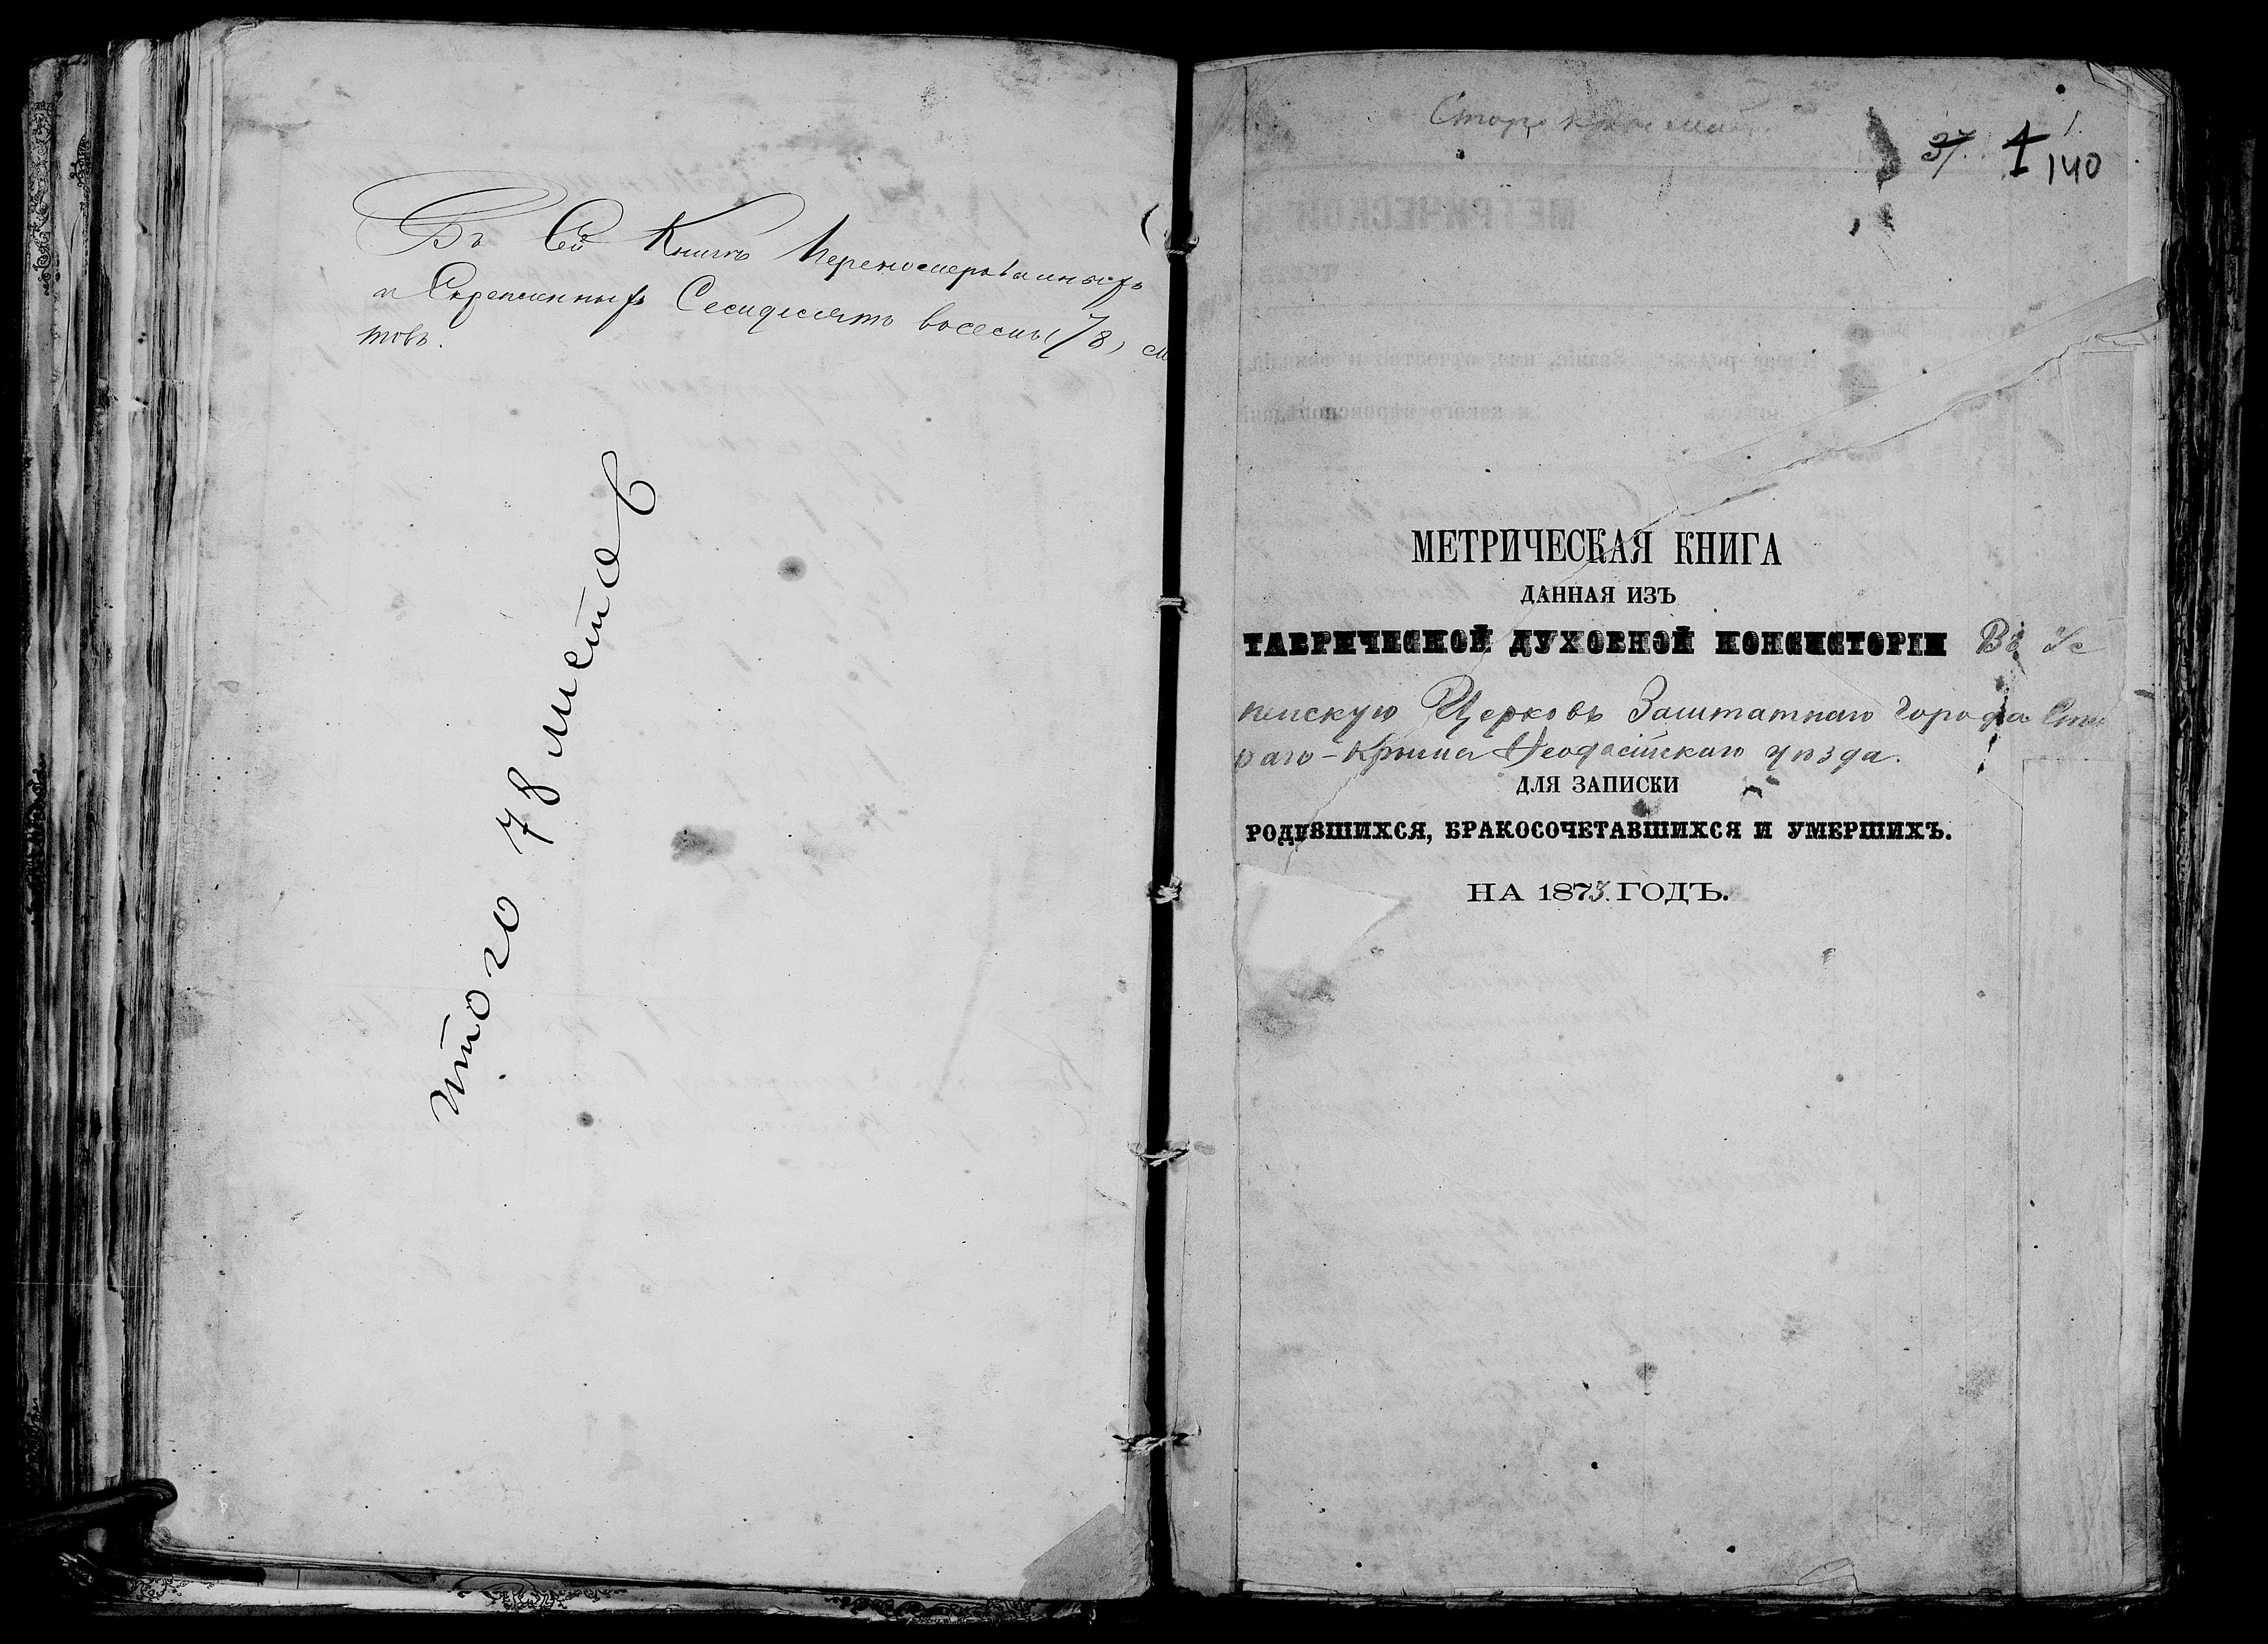 Въ Сей Книгѣ Перенумерованныхъ
и Скрепленныхъ Семидесятъ восемь (78) лис
товъ.
итого 78 листов
37. 1 1.
140
МЕТРИЧЕСКАЯ КНИГА
ДАННАЯ ИЗЪ
ТАВРИЧЕСКОЙ ДУХОВНОЙ КОНСИСТОРІИ Въ Ус
пенскую Церковь Заштатнаго города Ста
раго-Крыма Ѳеодосійскаго уѣзда.
ДЛЯ ЗАПИСКИ
РОДИВШИХСЯ, БРАКОСОЧЕТАВШИХСЯ И УМЕРШИХЪ.
НА 1873 ГОДЪ.